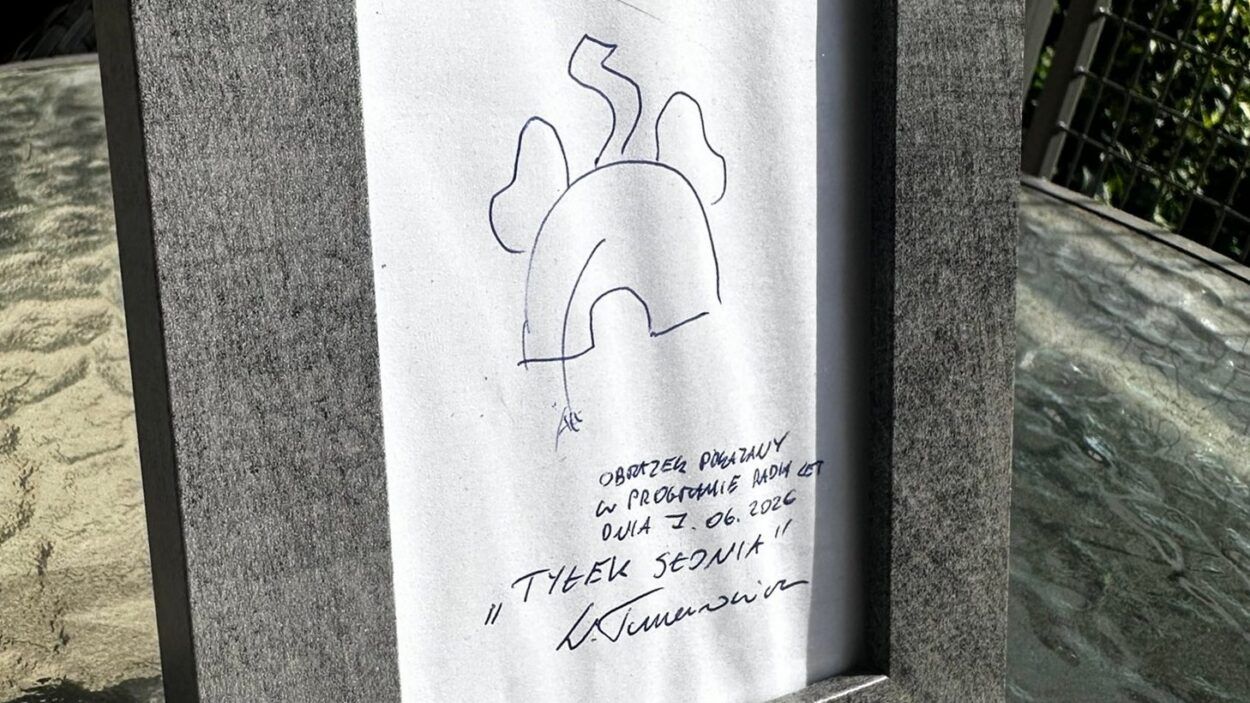 OBRAZEK POKAZANY
W PROGRAMIE RADIA ZET
DNIA 7.06.2026
"TYŁEK SŁONIA"